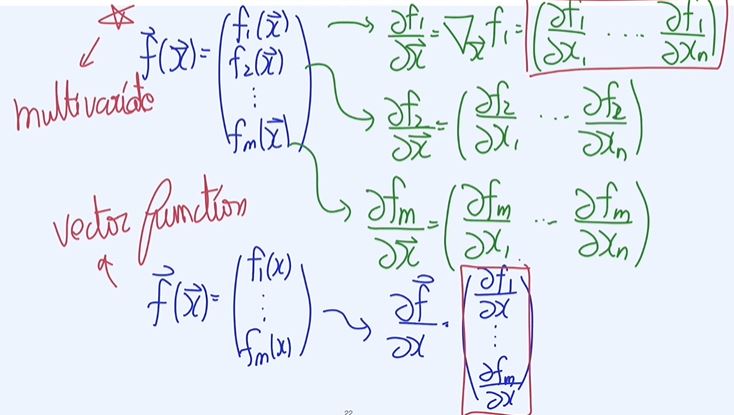 ☆
multivariate
f⃗(x⃗) = ( f₁(x⃗) f₂(x⃗) ⋮ fₘ(x⃗) )
→ ∂f₁/∂x⃗ = ∇x⃗ f₁ = ( ∂f₁/∂x₁ ‥‥ ∂f₁/∂xₙ )
→ ∂f₂/∂x⃗ = ( ∂f₂/∂x₁ ⋯ ∂f₂/∂xₙ )
→ ∂fₘ/∂x⃗ = ( ∂fₘ/∂x₁ ⋯ ∂fₘ/∂xₙ )
vector function
f⃗(x⃗) = ( f₁(x) ⋮ fₘ(x) ) → ∂f⃗/∂x · ( ∂f₁/∂x ⋮ ∂fₘ/∂x )
22